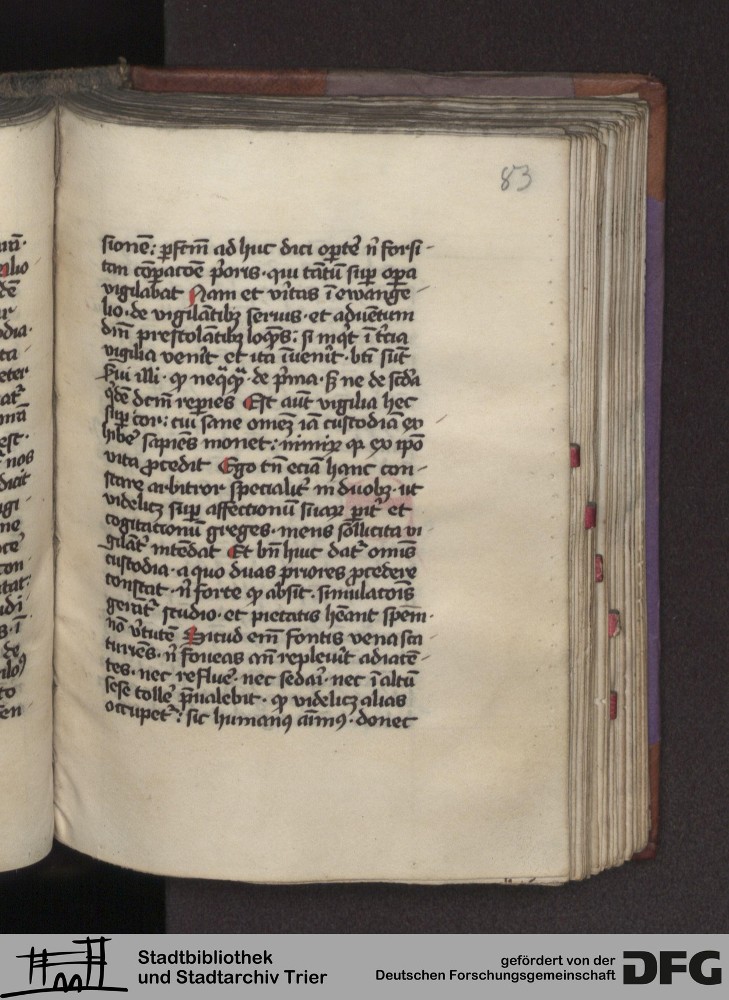 83
sionē: ꝑfcm̄ ad huc dici oꝑtet̄ n̄ forsi-
tan cōꝑacōe p̄oris · qui tātū suꝑ oꝑa
vigilabat Nam et v̄itas ī ewange-
lio · de vigilātibꝫ seruis · et aduētum
dn̄i prestolātibꝫ
vigilia ven̄it et ita īuen̄it · bt̄i sūt
s̄ui illi · de p̄ma · ne de scd̄a
repies Est aūt vigilia hec
suꝑ cor: cui sane omēꝫ iā custodiā ex
hibe sapiēs monet: ex ip̄o
vita ꝓcedit Ego tn̄ eciā hanc con-
stare arbitror specialit̄ in duobꝫ · ut
videlicꝫ suꝑ affectionū suaꝝ et
cogitationū greges · mens sollicita vi
gilāt̄ intēdat Et bn̄ huic dat̄ omīs
custodia · a quo duas priores ꝓcedere
constat · n̄ forte absit · simulatōis
gerat̄ studio · et pietatis hēant spēm ·
nō v̄tutē Sicud em̄ fontis vena sca
turiēs · n̄ foueas replev̄it adiacē-
tes · nec reflue · nec sedari · nec ī altū
sese tolle p̄ualebit · videlicꝫ alias
occupet: sic humanꝰ aīmꝰ · donec
Stadtbibliothek
und Stadtarchiv Trier
gefördert von der
Deutschen Forschungsgemeinschaft
DFG